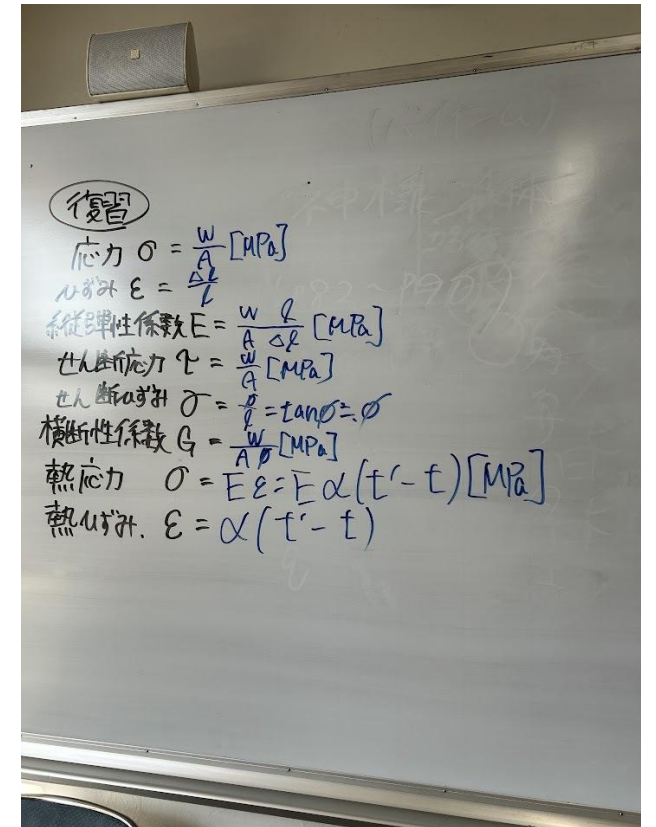 復習
応力 σ = W/A [MPa]
ひずみ ε = Δl/l
縦弾性係数 E = W l / A Δl [MPa]
せん断応力 τ = W/A [MPa]
せん断ひずみ γ = /l = tanø ≒ ø
横断性係数 G = W/Aø [MPa]
熱応力 σ = Eε = Eα(t'-t) [MPa]
熱ひずみ. ε = α(t'-t)